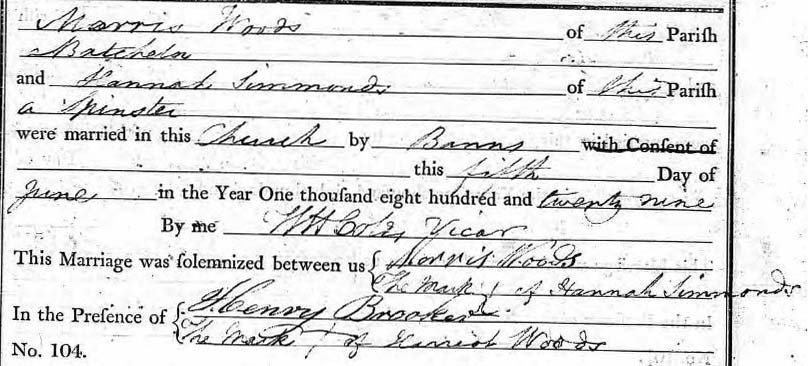 Morris Woods of this Pariſh
Batchelor
and Hannah Simmonds of this Pariſh
a Spinster
were married in this Church by Banns with Conſent of
this fifth Day of
June in the Year One thouſand eight hundred and twenty nine
By me WH Vicar
This Marriage was ſolemnized between us { Morris Woods
The Mark of Hannah Simmonds
In the Preſence of { Henry Brooker
The Mark of Harriot Woods
No. 104.